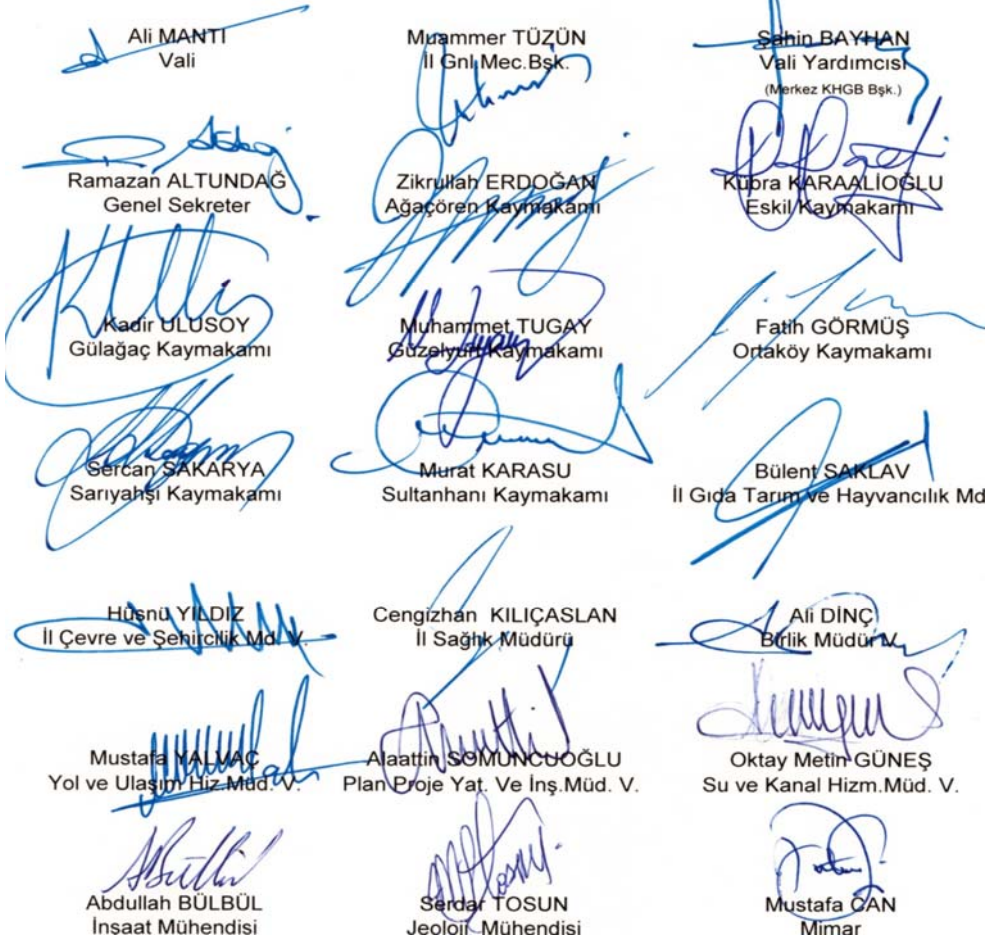 Ali MANTI
Vali
Muammer TÜZÜN
İl Gnl.Mec.Bşk.
Şahin BAYHAN
Vali Yardımcısı
(Merkez KHGB Bşk.)
Ramazan ALTUNDAĞ
Genel Sekreter
Zikrullah ERDOĞAN
Ağaçören Kaymakamı
Kübra KARAALİOĞLU
Eskil Kaymakamı
Kadir ULUSOY
Gülağaç Kaymakamı
Muhammet TUGAY
Güzelyurt Kaymakamı
Fatih GÖRMÜŞ
Ortaköy Kaymakamı
Sercan SAKARYA
Sarıyahşi Kaymakamı
Murat KARASU
Sultanhanı Kaymakamı
Bülent SAKLAV
İl Gıda Tarım ve Hayvancılık Md
Hüsnü YILDIZ
İl Çevre ve Şehircilik Md. V.
Cengizhan KILIÇASLAN
İl Sağlık Müdürü
Ali DİNÇ
Birlik Müdür V.
Mustafa YALVAÇ
Yol ve Ulaşım Hiz.Müd. V.
Alaattin SOMUNCUOĞLU
Plan Proje Yat. Ve İnş.Müd. V.
Oktay Metin GÜNEŞ
Su ve Kanal Hizm.Müd. V.
Abdullah BÜLBÜL
İnşaat Mühendisi
Serdar TOSUN
Jeoloji Mühendisi
Mustafa CAN
Mimar